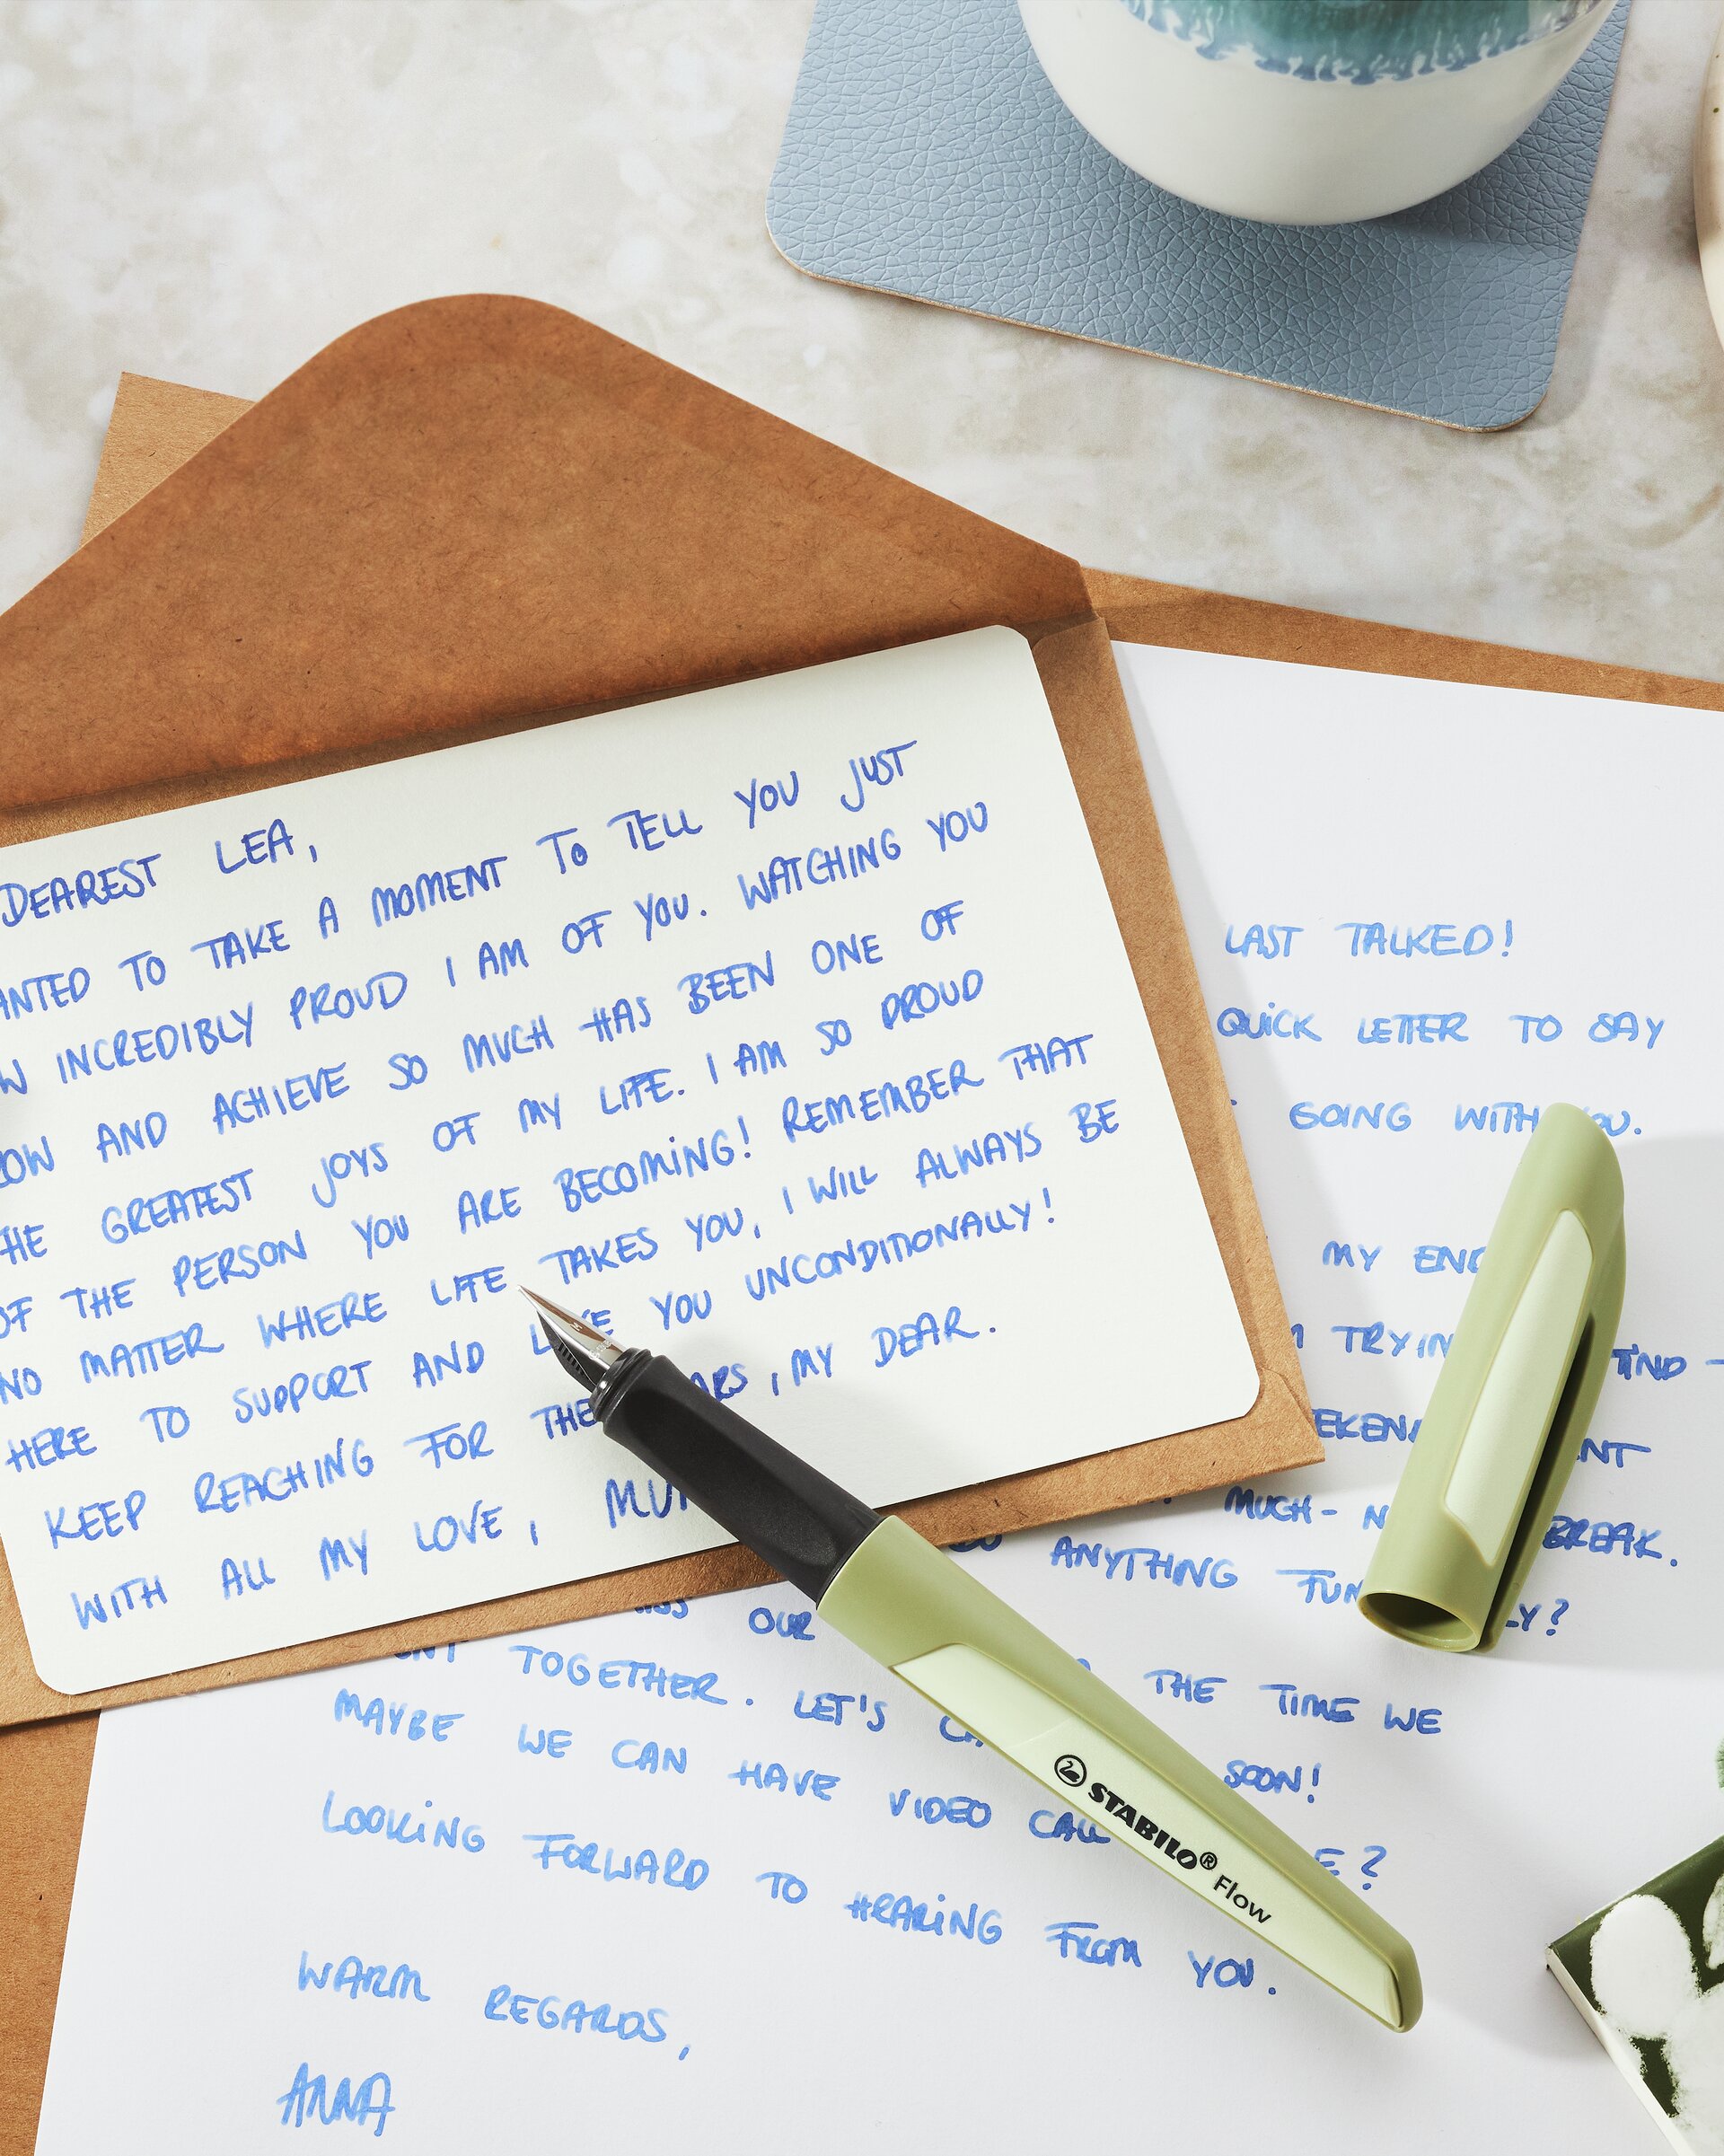 DEAREST LEA,
ANTED TO TAKE A MOMENT TO TELL YOU JUST
W INCREDIBLY PROUD I AM OF YOU. WATCHING YOU
OW AND ACHIEVE SO MUCH HAS BEEN ONE OF
HE GREATEST JOYS OF MY LIFE. I AM SO PROUD
OF THE PERSON YOU ARE BECOMING! REMEMBER THAT
NO MATTER WHERE LIFE TAKES YOU, I WILL ALWAYS BE
HERE TO SUPPORT AND L E YOU UNCONDITIONALLY!
KEEP REACHING FOR THE ARS, MY DEAR.
WITH ALL MY LOVE, MU
LAST TALKED!
QUICK LETTER TO SAY
GOING WITH OU.
MY END
TRYIN IND
EKEN NT
MUCH- N BREAK.
ANYTHING FUN LY?
ISS OUR THE TIME WE
ENT TOGETHER. LET'S C SOON!
MAYBE WE CAN HAVE VIDEO CALL E?
LOOKING FORWARD TO HEARING FROM YOU.
WARM REGARDS,
ANNA
STABILO® Flow